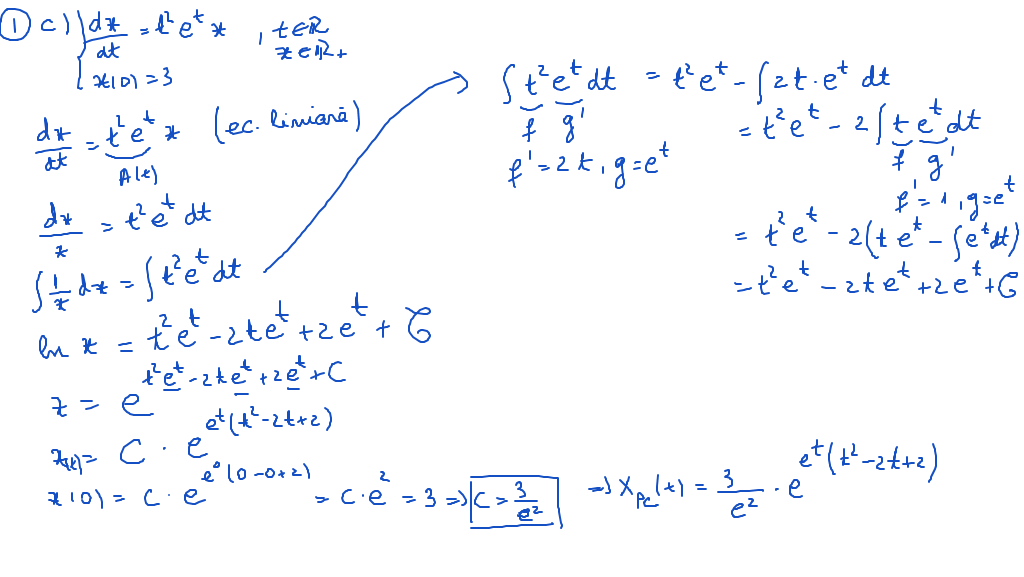 ① c) { dx/dt = t² e^t x , t ∈ ℝ
x ∈ ℝ₊
x(0) = 3
dx/dt = t² e^t x (ec. liniară)
A(t)
dx/x = t² e^t dt
∫ 1/x dx = ∫ t² e^t dt
ln x = t² e^t - 2t e^t + 2e^t + C
x = e^(t² e^t - 2t e^t + 2e^t + C)
x(t) = C · e^(e^t (t² - 2t + 2))
x(0) = C · e^(e^0 (0 - 0 + 2)) = C · e² = 3 => C = 3/e² => X_PC(t) = 3/e² · e^(e^t (t² - 2t + 2))
∫ t² e^t dt = t² e^t - ∫ 2t · e^t dt
f g'
f' = 2t , g = e^t
= t² e^t - 2 ∫ t e^t dt
f g'
f' = 1 , g = e^t
= t² e^t - 2(t e^t - ∫ e^t dt)
= t² e^t - 2t e^t + 2e^t + C